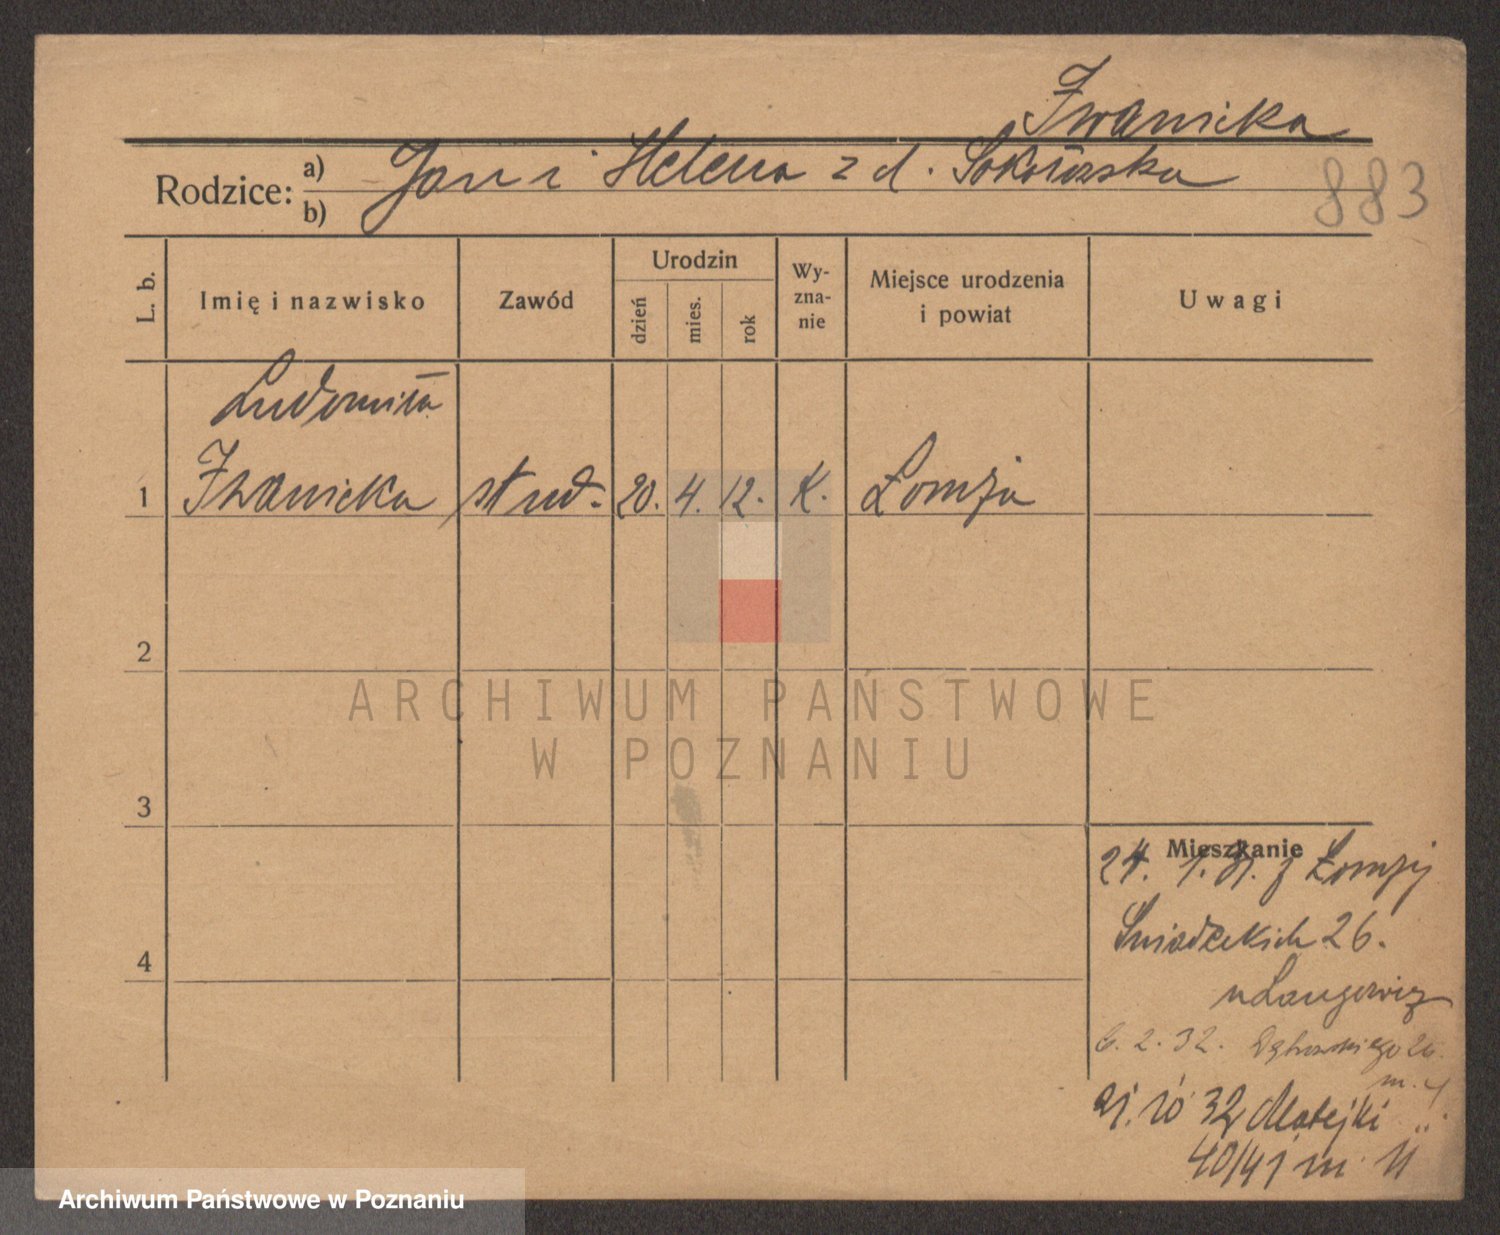 Iwanicka
Rodzice: a) Jan i Helena z d. Sokołowska
b)
883
L. b.
Imię i nazwisko
Zawód
Urodzin
dzień
mies.
rok
Wy-
zna-
nie
Miejsce urodzenia
i powiat
Uwagi
Ludomiła
1 Iwanicka stud. 20. 4. 12. K. Łomża
2
ARCHIWUM PAŃSTWOWE
W POZNANIU
3
Mieszkanie
24. 1. 31. z Łomży
Śniadeckich 26.
6. 2. 32. Dąbrowskiego 26.
m. 4
10 32 Matejki
40/41 m. 11
4
Archiwum Państwowe w Poznaniu